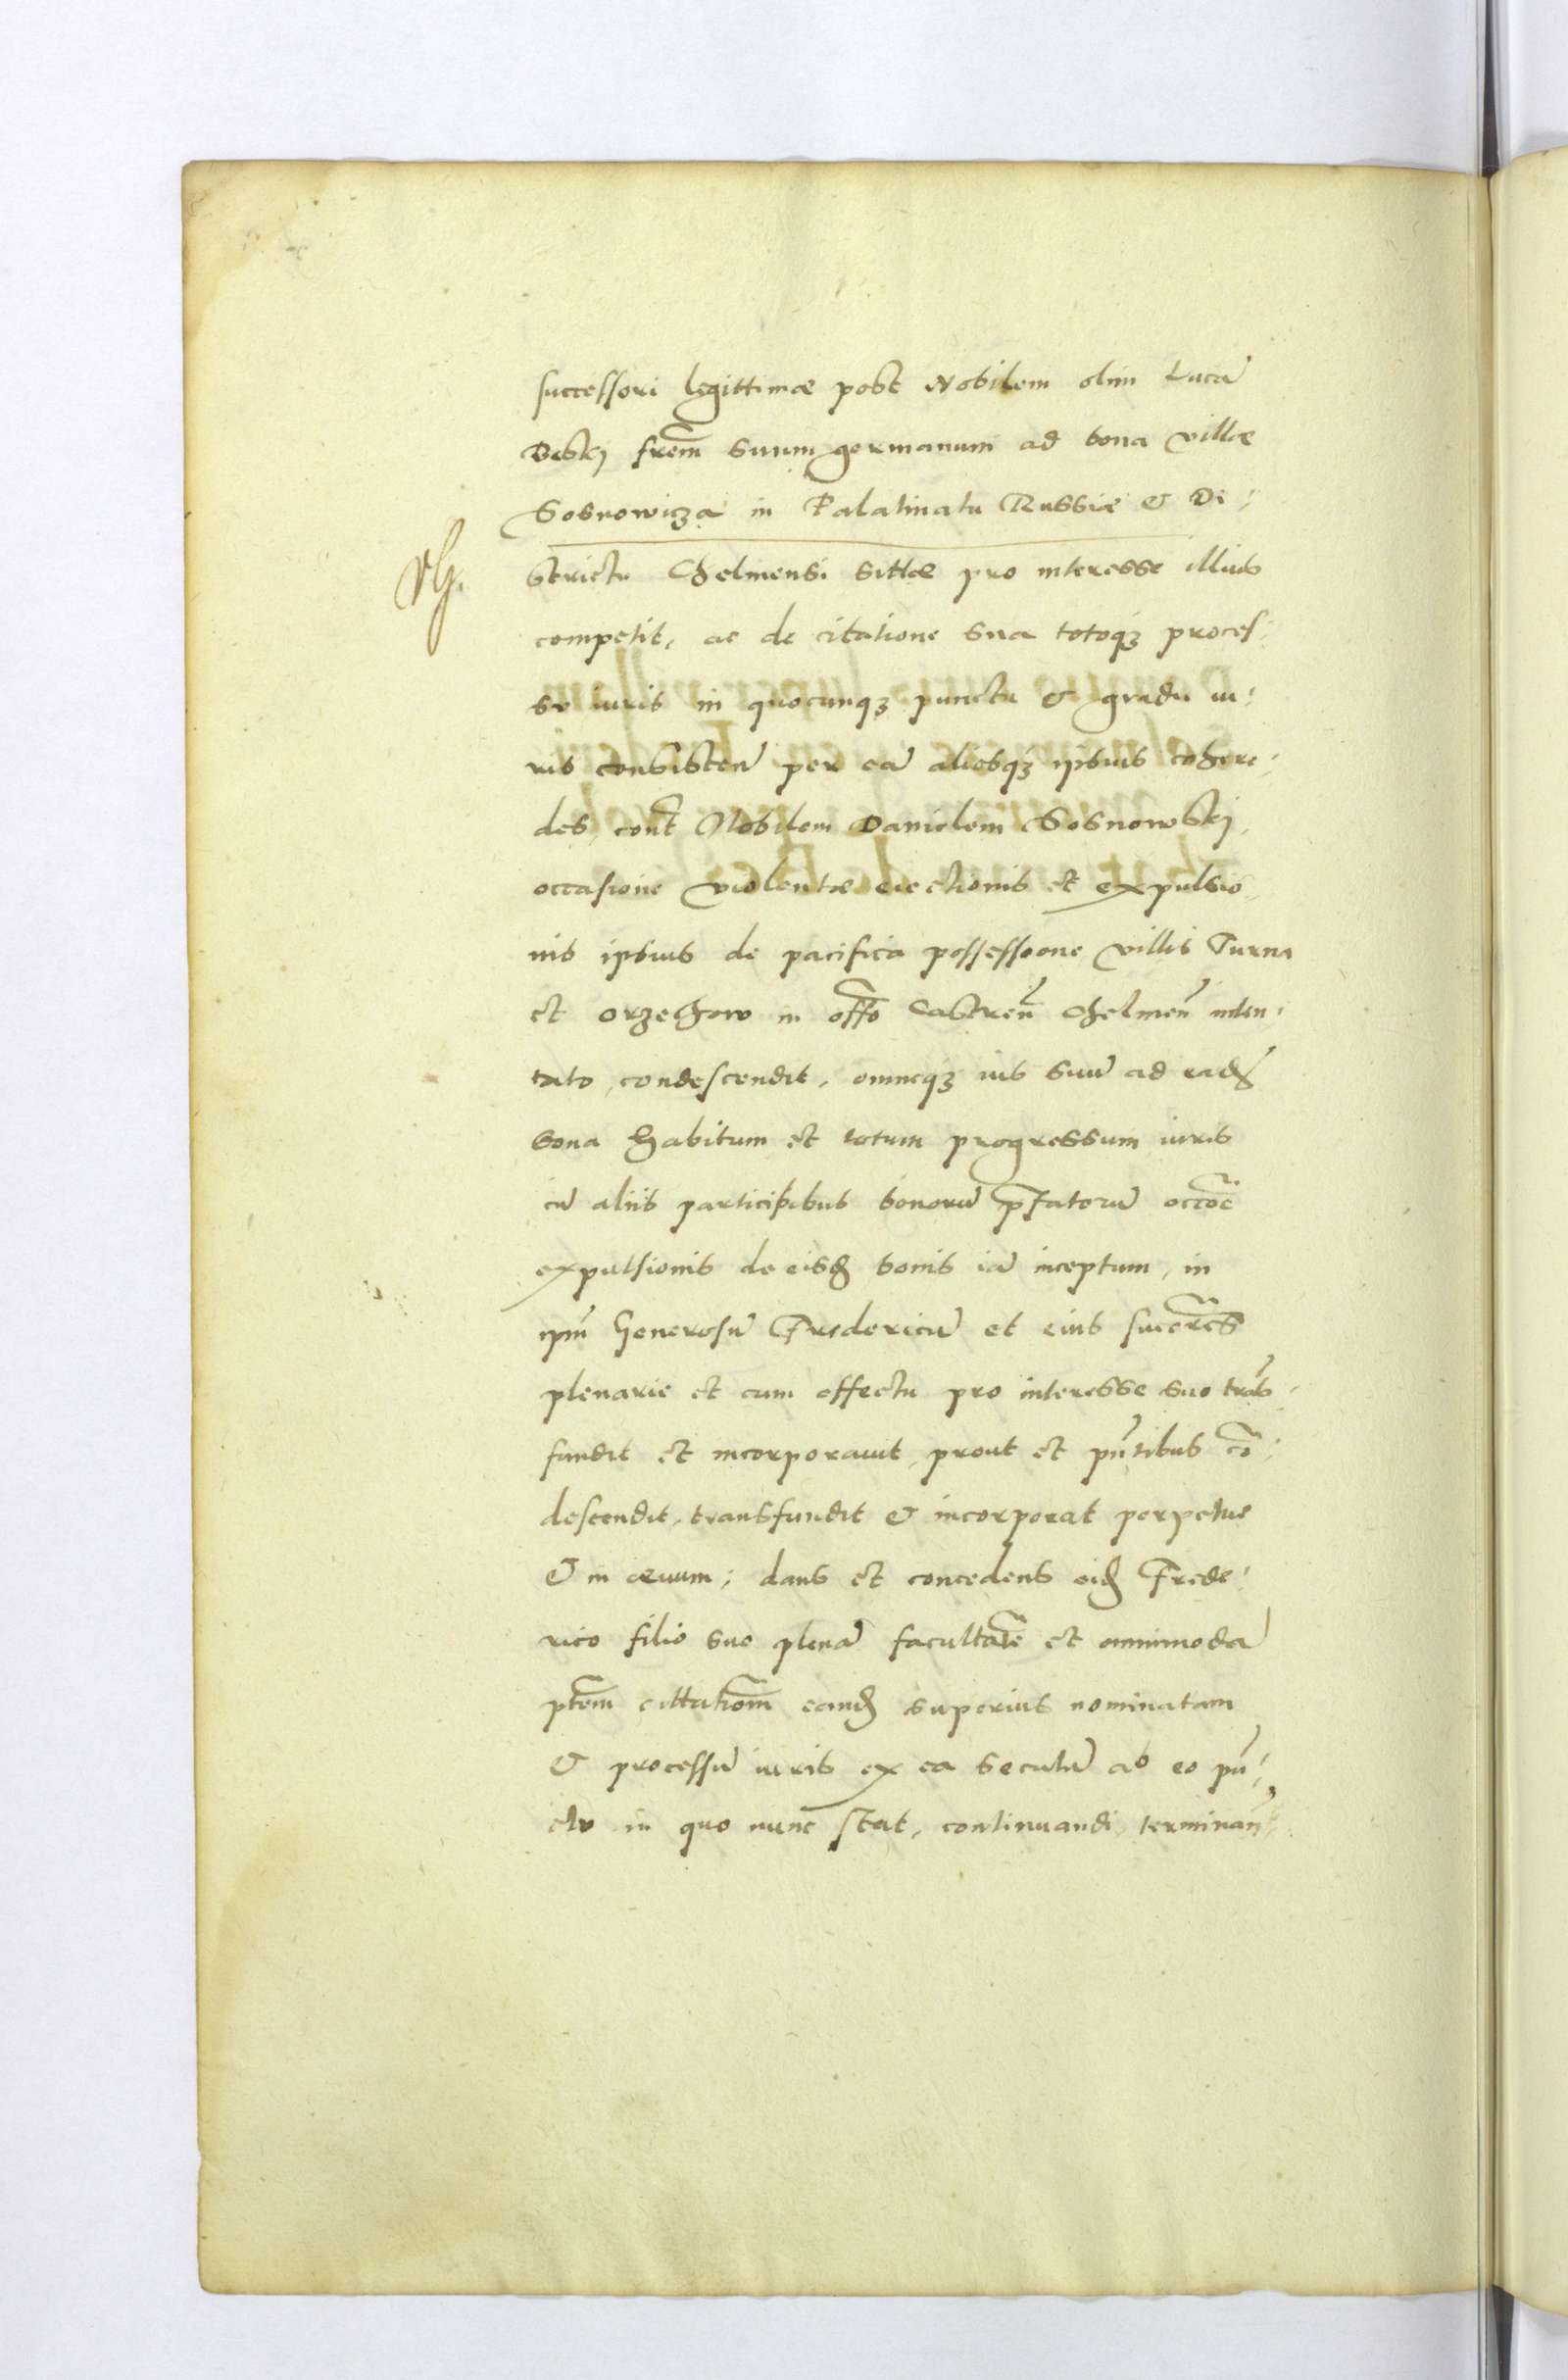 successori legittimæ post Nobilem olim Lucã
Beski frem̃ suum germanum ad bona villæ
Sosnowicza in Palatinatu Russiæ & Di:
strictu Chelmensi sittæ pro interesse illius
competit, ac de citatione sua totoqȝ proces:
so iuris in quocunqȝ punctu & gradu iu:
ris consisteñ per eã aliosqȝ ipsius cohere:
des, cont̃ Nobilem Danielem Sosnowski,
occasione violentæ eiectionis et expulsio
nis ipsius de pacifica possessione villis Turna
et Orzechow in offõ Castreñ Chelmeñ inten:
tato, condescendit, omneqȝ ius suũ ad eadẽ
bona habitum et totum progressum iuris
cũ aliis participibus bonorũ p̃fatorũ occõe
expulsionis de eisđ bonis iã inceptum, in
ipm̃ Generosũ Fredericũ et eius succr̃es
plenarie et cum effectu pro interesse suo trãs:
fundit et incorporavit, prout et pñtibus cõ:
descendit, transfundit & incorporat perpetue
& in ævum; dans et concedens eiđ Frede:
rico filio suo plenã facultatẽ et omnimodã
ptẽm cittatiõm eanđ superius nominatam
& processũ iuris ex ea secutũ ab eo pũ:
cto in quo nunc stat, continuandi, terminan